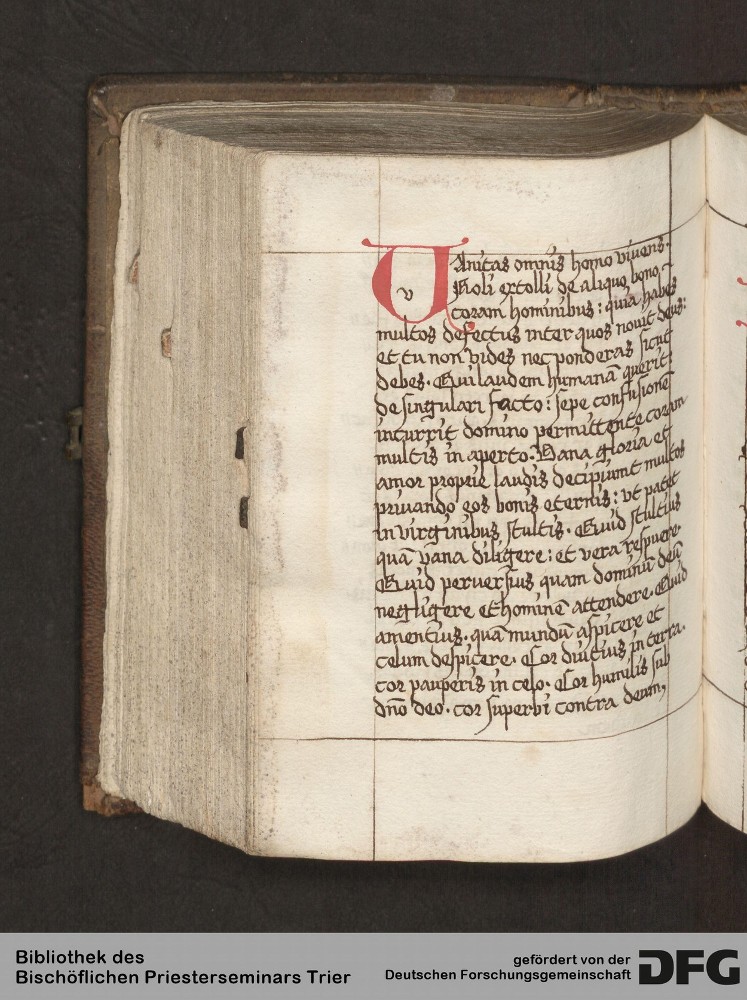 Vanitas omnis homo vivens.
Noli extolli de aliquo bono
coram hominibus: quia habes
multos defectus inter quos novit deus:
et tu non vides nec ponderas sicut
debes. Qui laudem humanā querit:
de singulari facto: sepe confusiones
incurrit domino permittente coram
multis in aperto. Vana gloria et
amor proprie laudis decipiunt multos
privando eos bonis eternis: ut patet
in virginibus stultis. Quid stultius
quā vana diligere: et vera respuere.
Quid perversius quam dominū deū
negligere et hominē attendere. Quid
amentius. quā mundū aspicere et
celum despicere. Cor divitius in terra.
cor pauperis in celo. Cor humilis sub
dn̄o deo. cor superbi contra deum,
Bibliothek des
Bischöflichen Priesterseminars Trier
gefördert von der
Deutschen Forschungsgemeinschaft
DFG